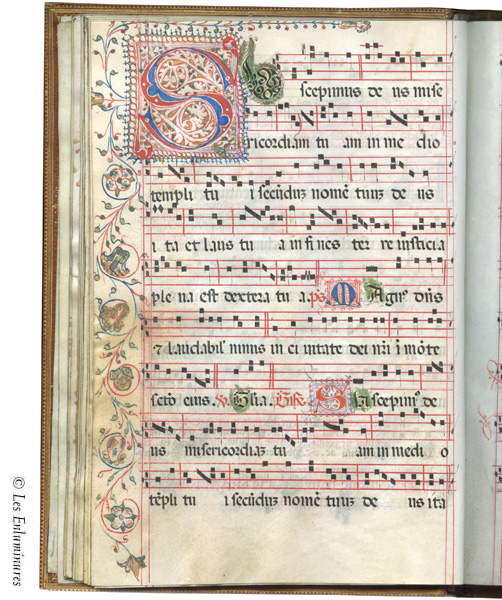 Suscepimus de us mise
ricordiam tu am in me dio
templi tu i secūduȝ nomē tuuȝ de us
i ta et laus tu a in fi nes ter re iusticia
ple na est dextera tu a. ps. Magnꝰ dn̄s
⁊ laudabil' nimis in ci uitate dei nr̄i ī mōte
sctō eius. Gl̄ia. Suscepimꝰ de
us misericordiaȝ tu am in medi o
tēpli tu i secūduȝ nomē tuuȝ de us ita
© Les Enluminures